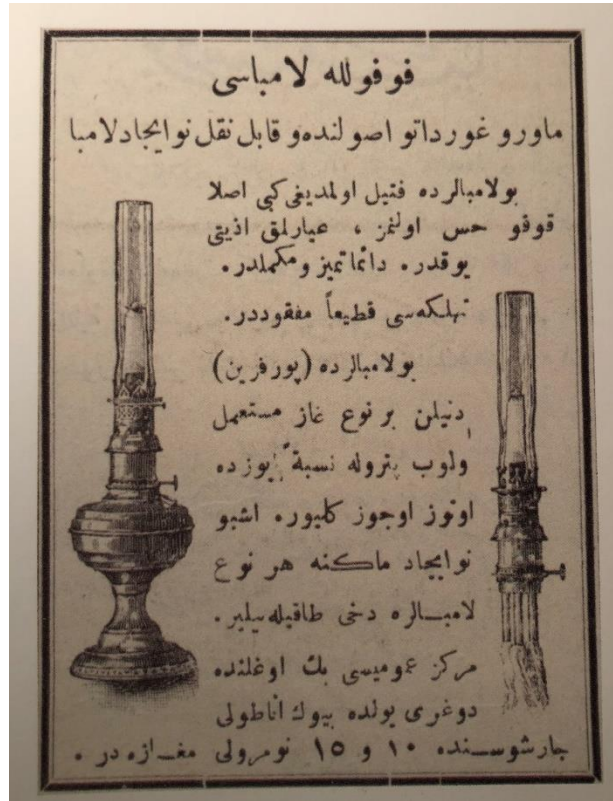 فوفولله لامباسی
ماورو غورداتو اصولنده و قابل نقل نوایجاد لامبا
بولامبالرده فتیل اولمدیغی کبی اصلا
قوقو حس اولنمز ، عیارلمق اذیتی
یوقدر. دائما تمیز و مکملدر.
تهلکه‌سی قطیعاً مفقوددر.
بولامبالرده (پورفرین)
دنیلن بر نوع غاز مستعمل
ولوب پتروله نسبةً یوزده
اوتوز اوجوز کلیور. اشبو
نوایجاد ماکنه هر نوع
لامبـالره دخی طاقیله‌بیلیر.
مرکز عمومیسی بك اوغلنده
دوغری یولده بیوك اناطولی
جارشوسـنده ١٠ و ١٥ نومرولی مغـازه در .